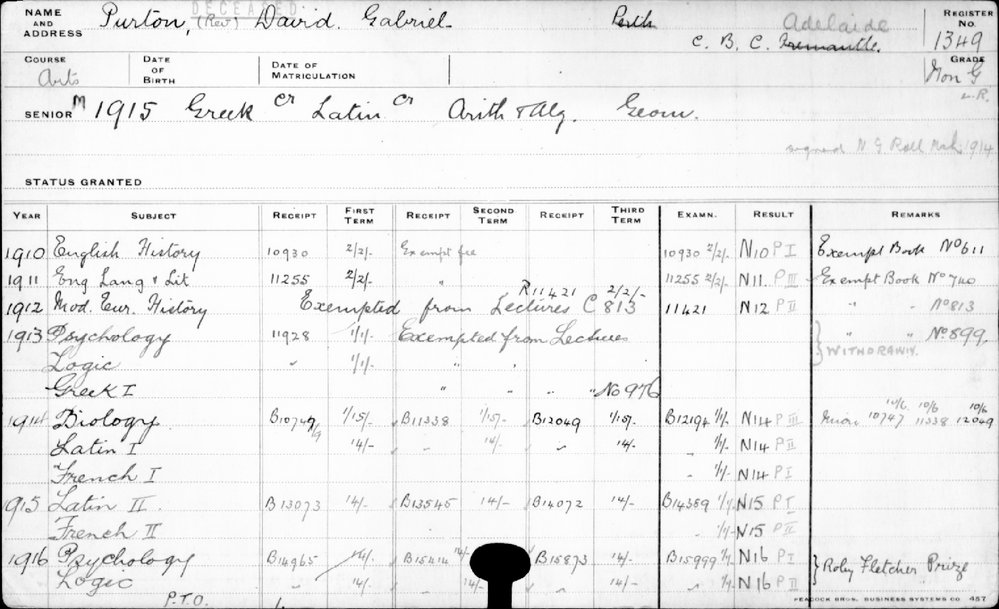 DECEASED
NAME AND ADDRESS Purton, (Rev) David Gabriel Perth Adelaide C. B. C. Fremantle. REGISTER No. 1349
COURSE Arts DATE OF BIRTH DATE OF MATRICULATION GRADE Non G
SENIOR M 1915 Greek cr Latin cr Arith & Alg. Geom.
signed N G Roll 1914
STATUS GRANTED
YEAR SUBJECT RECEIPT FIRST TERM RECEIPT SECOND TERM RECEIPT THIRD TERM EXAMN. RESULT REMARKS
1910 English History 10930 2/2/- Exempt fee 10930 2/2/- N10 P I Exempt Book No 611
1911 Eng Lang & Lit 11255 2/2/- " 11255 2/2/- N11. P III Exempt Book No 740
R11421 2/2/-
1912 Mod. Eur. History Exempted from Lectures C 813 11421 N12 P II " " No 813
1913 Psychology 11928 1/1/- Exempted from Lectures " " No 899
Logic " 1/1/- " " " WITHDRAWN.
Greek I " " " No 976
10/6 10/6 10/6
1914 Biology B10747/9 1/15/- B11338 1/15/- B12049 1/15/- B12194 1/1/- N14 P III 10747 11338 12049
Latin I 14/- " 14/- " 14/- " 1/1/- N14 P II
French I " 1/1/- N14 P I
1915 Latin II B13073 14/- B13545 14/- B14072 14/- B14359 1/1/- N15 P I
French II " 1/1/- N15 P II
1916 Psychology B14965 14/- B15414 14/- B15873 14/- B15999 1/1/- N16 P I Roby Fletcher Prize
Logic " 14/- " 14/- " 14/- " 1/1/- N16 P II
P.T.O.
PEACOCK BROS. BUSINESS SYSTEMS CO. 457